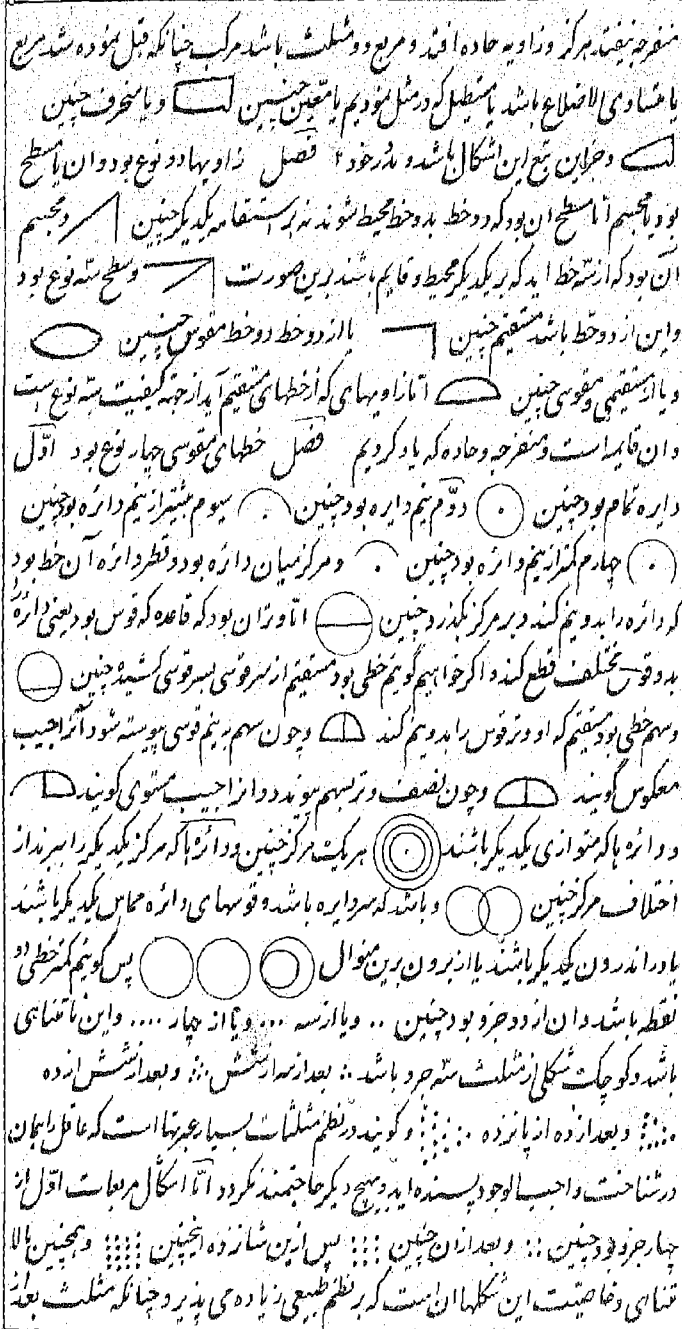 منفرجه نیفتد هرگز و زاویه حاده افتد و مربع دو مثلث باشد مرکب چنانکه قبل نموده شد مربع
یا متساوی الاضلاع باشد یا مستطیل که در مثل نمودیم یا معین چنین و یا منحرف چنین
و جز این تبع این اشکال باشد و در خود فصل زاویها دو نوع بود و ان یا مسطح
بود یا مجسم اما مسطح ان بود که دو خط بدو خط محیط شوند نه بر استقامه یکدیگر چنین و مجسم
آن بود که از سه خط اید که بر یکدیگر محیط و قایم باشند برین صورت و سطح سه نوع بود
و این از دو خط باشد مستقیم چنین یا از دو خط دو خط مقوس چنین
و یا از مستقیمی و مقوسی چنین اما زاویهای که از خطهای مستقیم آید از جهة کیفیت سه نوع است
و ان قایمه است و منفرجه و حاده که یاد کردیم فصل خطهای مقوسی چهار نوع بود اوّل
دایره تمام بود چنین دوّم نیم دایره بود چنین سیوم بیشتر از نیم دائره بود چنین
چهارم کمتر از نیم دائره بود چنین و مرکز میان دائره بود و قطر دائره آن خط بود
که دائره را بدو نیم کند و بر مرکز بگذرد چنین اما وتر ان بود که قاعده که قوس بود یعنی دائرهٔ را
بدو قوس مختلف قطع کند و اکر خواهیم گوئیم خطی بود مستقیم از سر قوسی بسر قوسی کشیده چنین
و سهم خطی بود مستقیم که او وتر قوس را بدو نیم کند و چون سهم بنیم قوسی پیوسته شود آنرا جیب
معکوس گویند و چون نصف وتر بسهم پیوندد و انرا جیب مستوی کویند
و دائره ها که متوازی یکدیگر باشند هر یک مرکز چنین و دائره ها که مرکز یکدیگر را ببرند از
اختلاف مرکز چنین و باشد که سر دایره باشد و قوسهای دائره مماس یکدیگر باشند
یا در اندرون یکدیگر باشند یا از برون برین منوال پس گوئیم کمتر خطی دو
نقطه باشد و ان از دو جزو بود چنین .. و یا از سه ... و یا از چهار .... و این نا تناهی
باشد و کوچک شکلی از مثلث سه جزو باشد بعد از سه از شش و بعد از شش از ده
و بعد از ده از پانزده و کویند در نظم مثلثات بسیار عبرتها است که عاقل را بجان
در شناخت واجب الوجود پسنده اید و بهیچ دیگر حاجتمند نکردد امّا اشکال مربعات اوّل از
چهار جزو بود چنین و بعد از ان چنین پس ازین شانزده اینچنین و همچنین بالا
تناهی و خاصیت این شکلها ان است که بر نظم طبیعی زیاده می پذیرد چنانکه مثلث بعد از